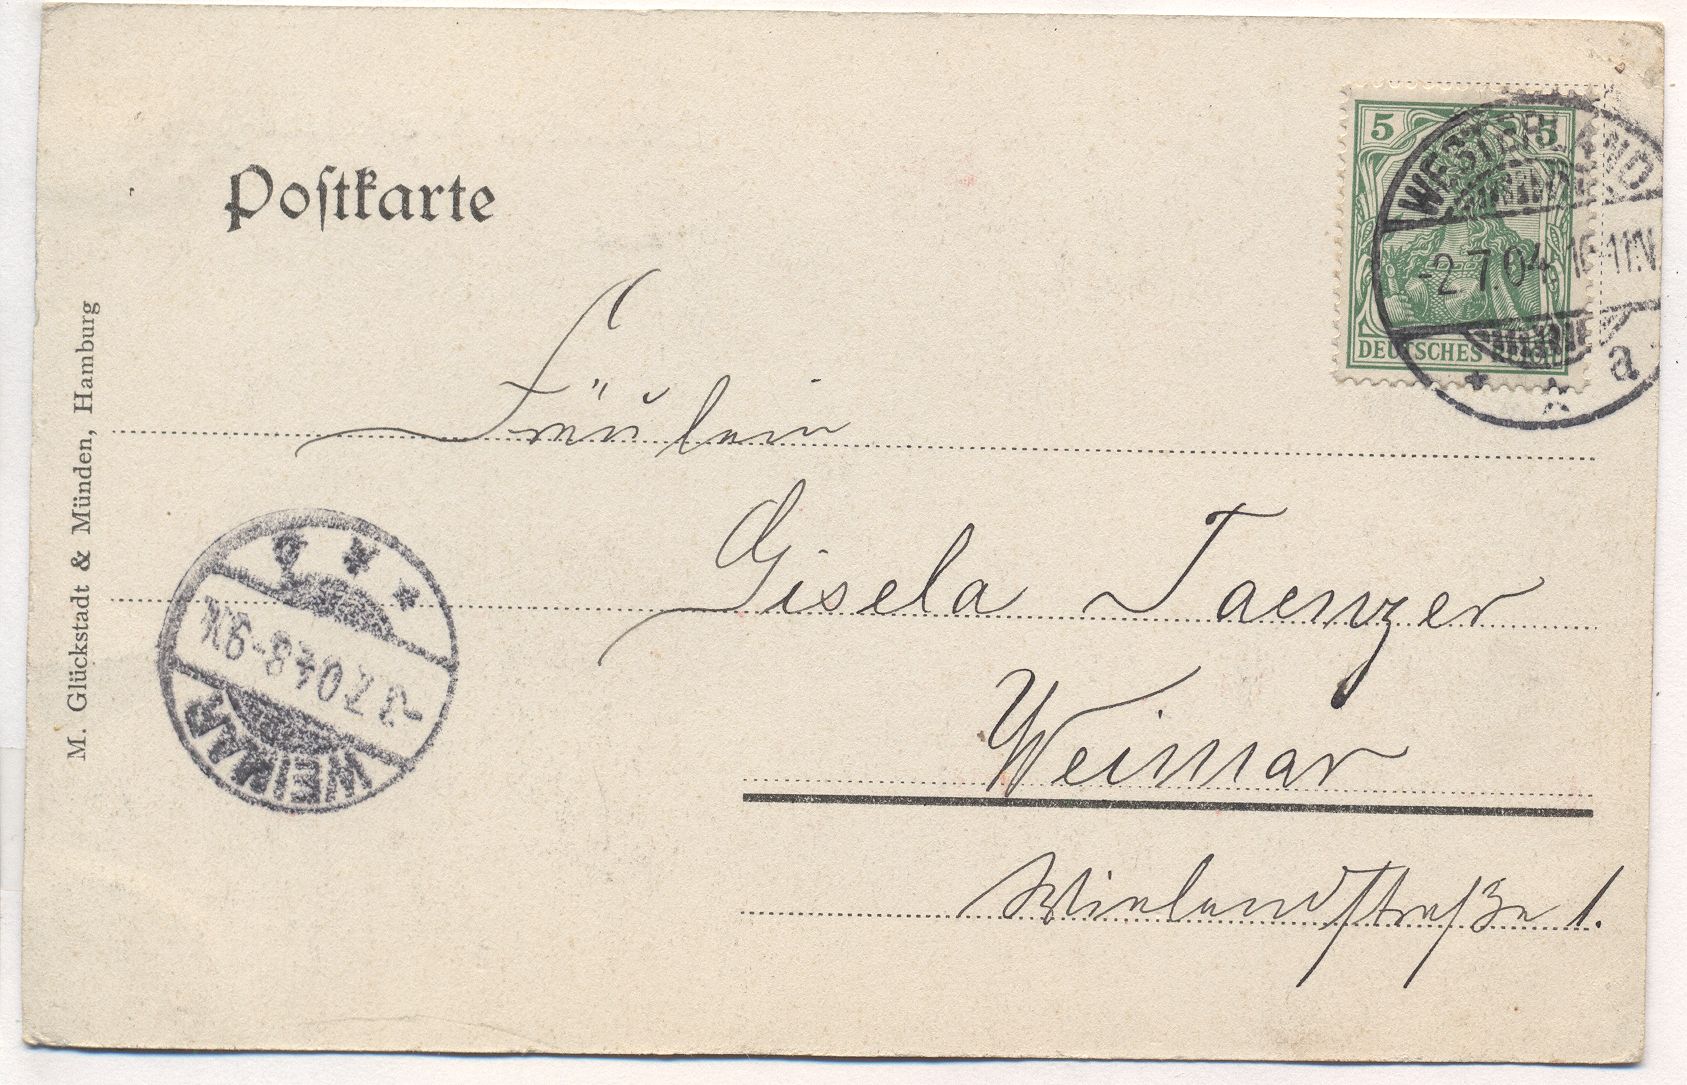 Postkarte
5 5
DEUTSCHES REICH
WESTERLAND
-2.7.04 10-11N
a
Fräulein
Gisela Taenzer
Weimar
Wielandstraße 1.
WEIMAR
-3.7.04 8-9N
M. Glückstadt & Münden, Hamburg